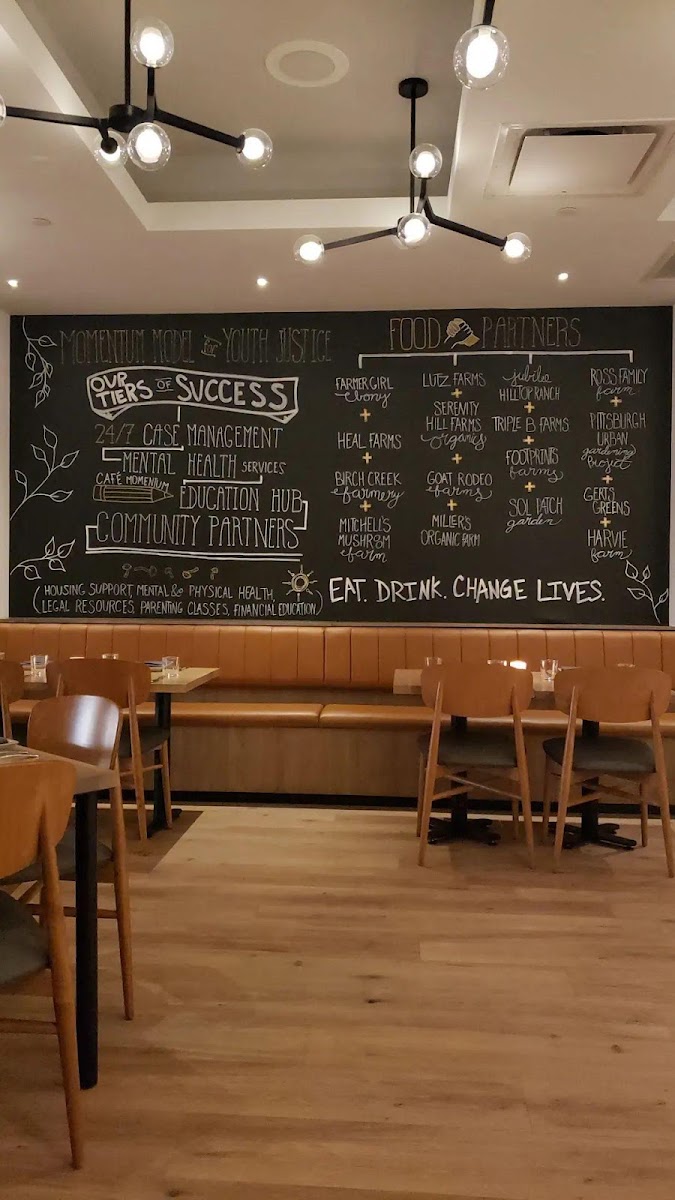 MOMENTUM MODEL for YOUTH JUSTICE
OUR TIERS OF SUCCESS
24/7 CASE MANAGEMENT
MENTAL HEALTH SERVICES
CAFÉ MOMENTUM
EDUCATION HUB
COMMUNITY PARTNERS
(HOUSING SUPPORT, MENTAL & PHYSICAL HEALTH,
LEGAL RESOURCES, PARENTING CLASSES, FINANCIAL EDUCATION)
FOOD PARTNERS
FARMER GIRL
ebony
+
HEAL FARMS
+
BIRCH CREEK
farmery
+
MITCHELL'S
MUSHROOM
farm
LUTZ FARMS
+
SERENITY
HILL FARMS
organics
+
GOAT RODEO
farms
+
MILLER'S
ORGANIC FARM
jubilee
HILLTOP RANCH
+
TRIPLE B FARMS
+
FOOTPRINTS
farms
+
SOL PATCH
garden
ROSS FAMILY
farm
+
PITTSBURGH
URBAN
gardening
project
+
GERTS
GREENS
+
HARVIE
farm
EAT. DRINK. CHANGE LIVES.